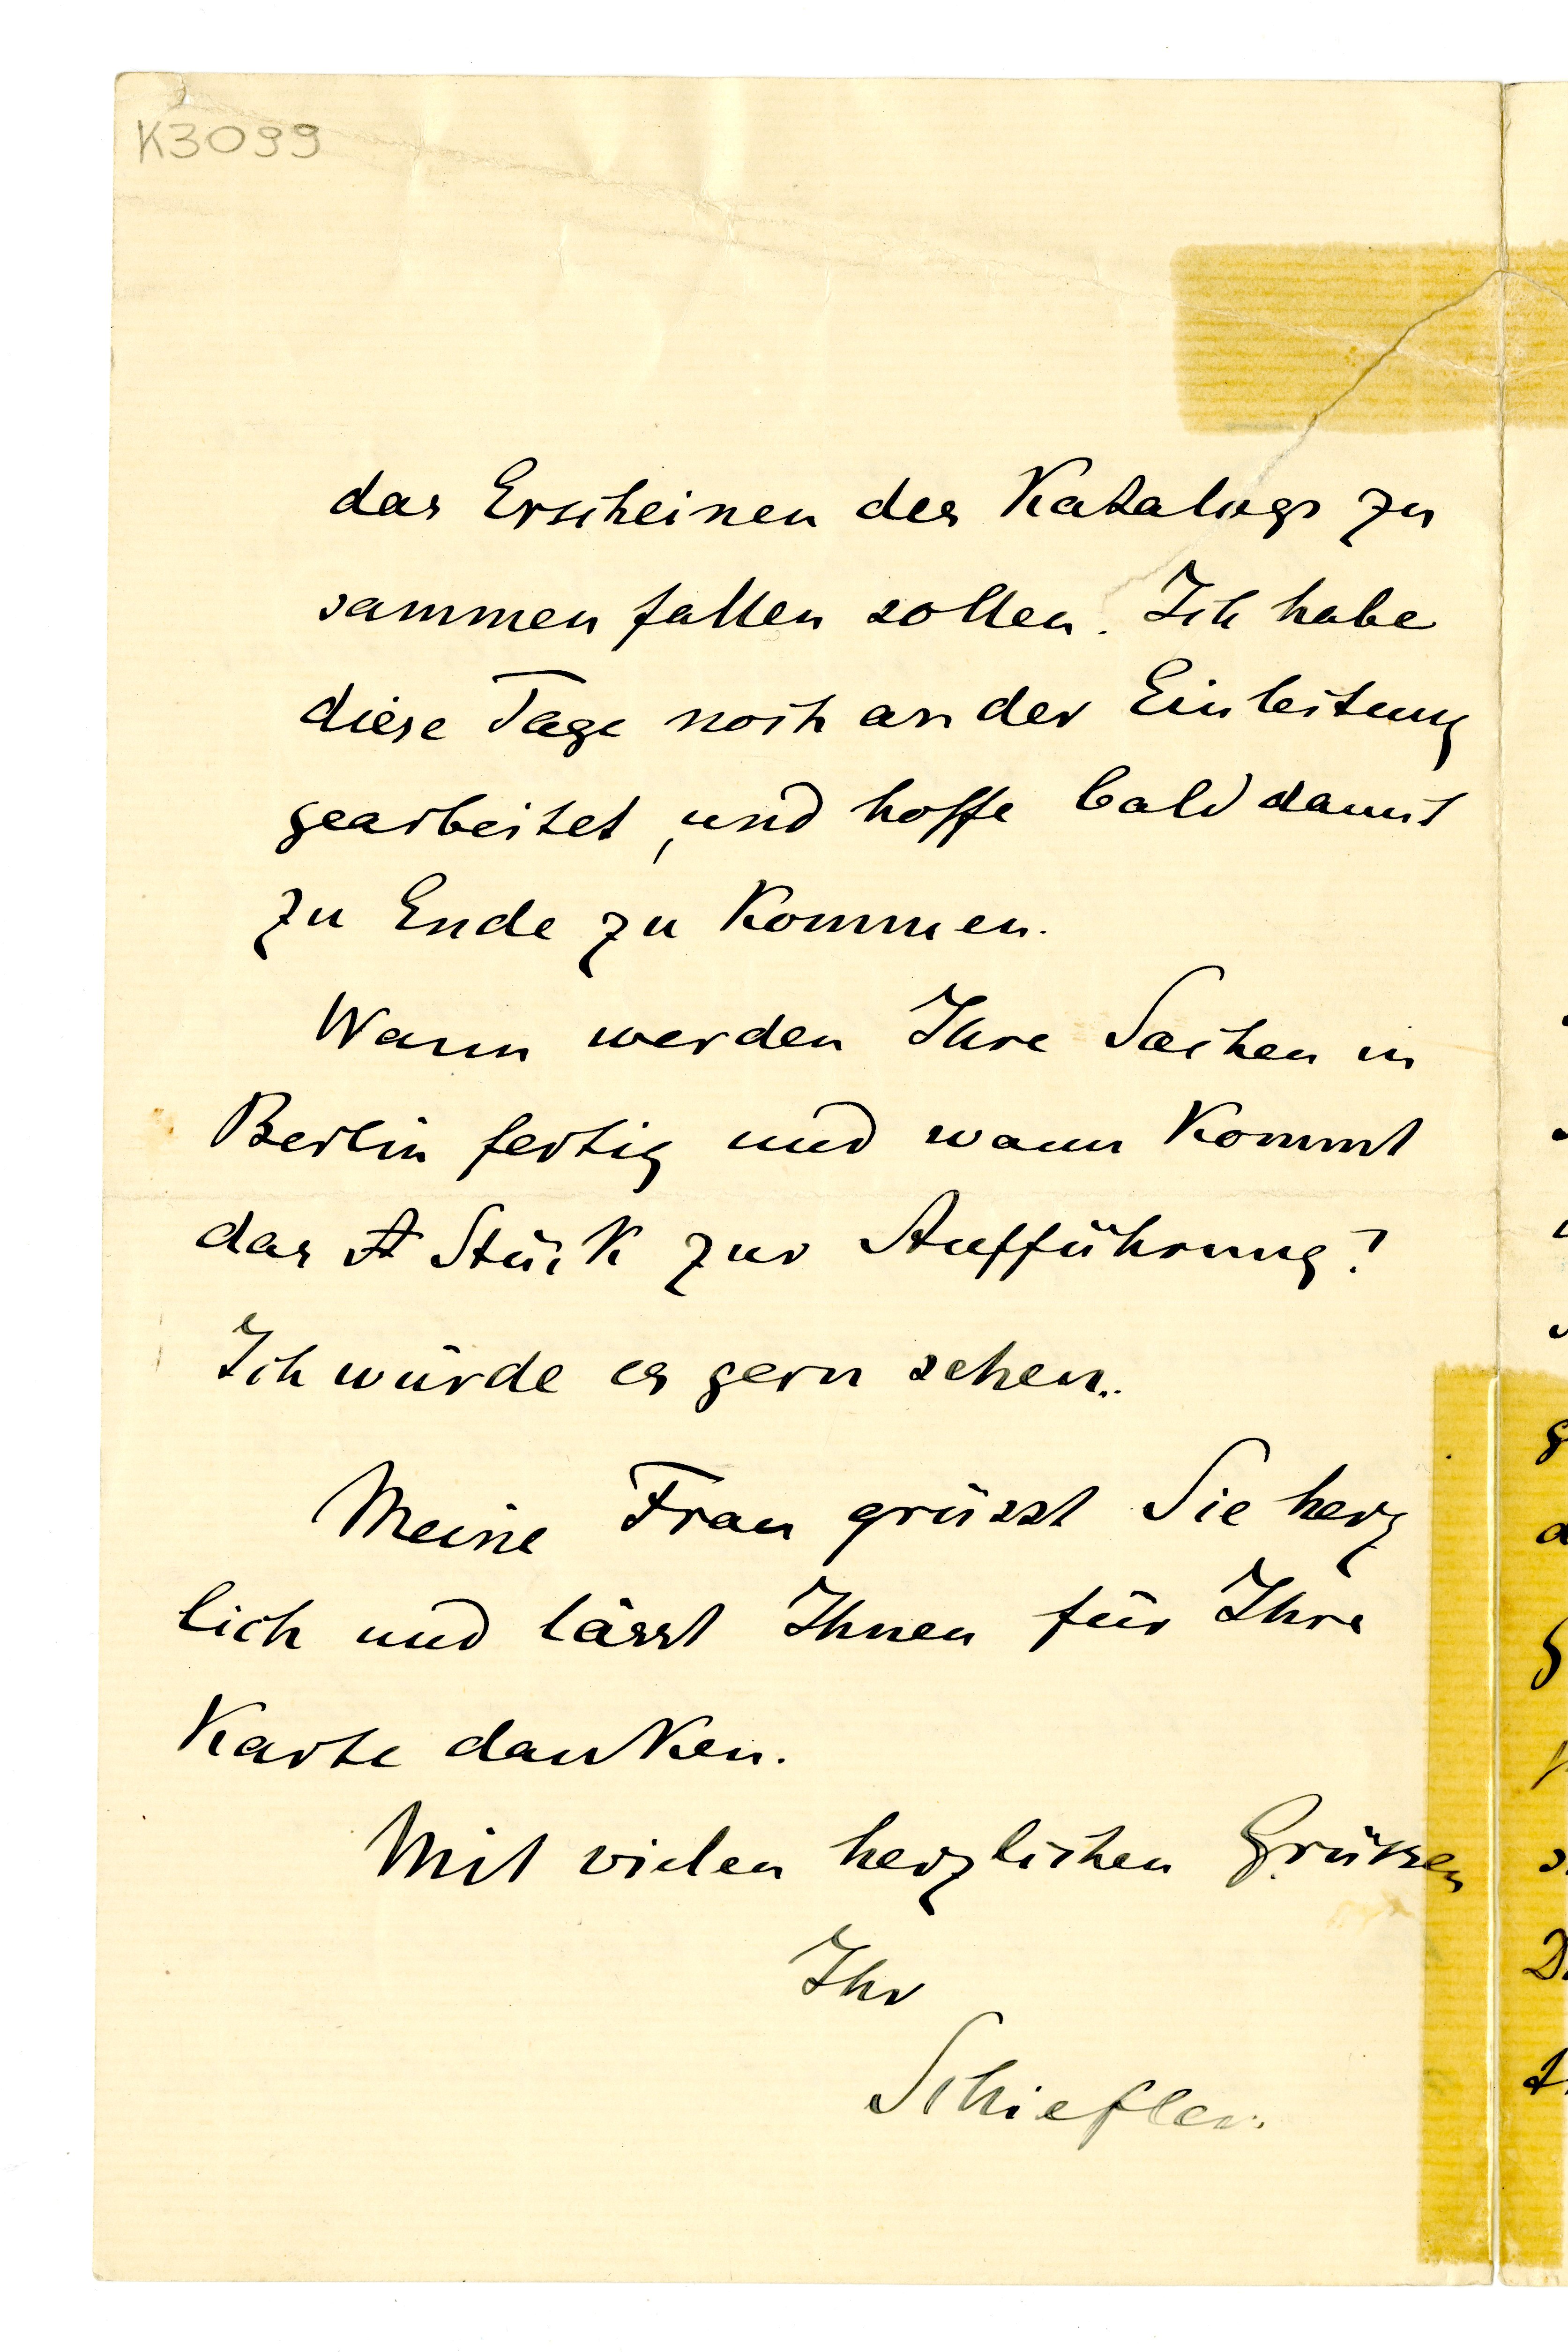 K3099
das Erscheinen des Katalogs zu
sammen fallen sollen. Ich habe
diese Tage noch an der Einleitung
gearbeitet, und hoffe bald damit
zu Ende zu kommen.
Wann werden Ihre Sachen in
Berlin fertig und wann kommt
das St Stück zur Aufführung?
Ich würde es gern sehen.
Meine Frau grüsst Sie herz
lich und lässt Ihnen für Ihre
Karte danken.
Mit vielen herzlichen Grüssen
Ihr
Schiefler.